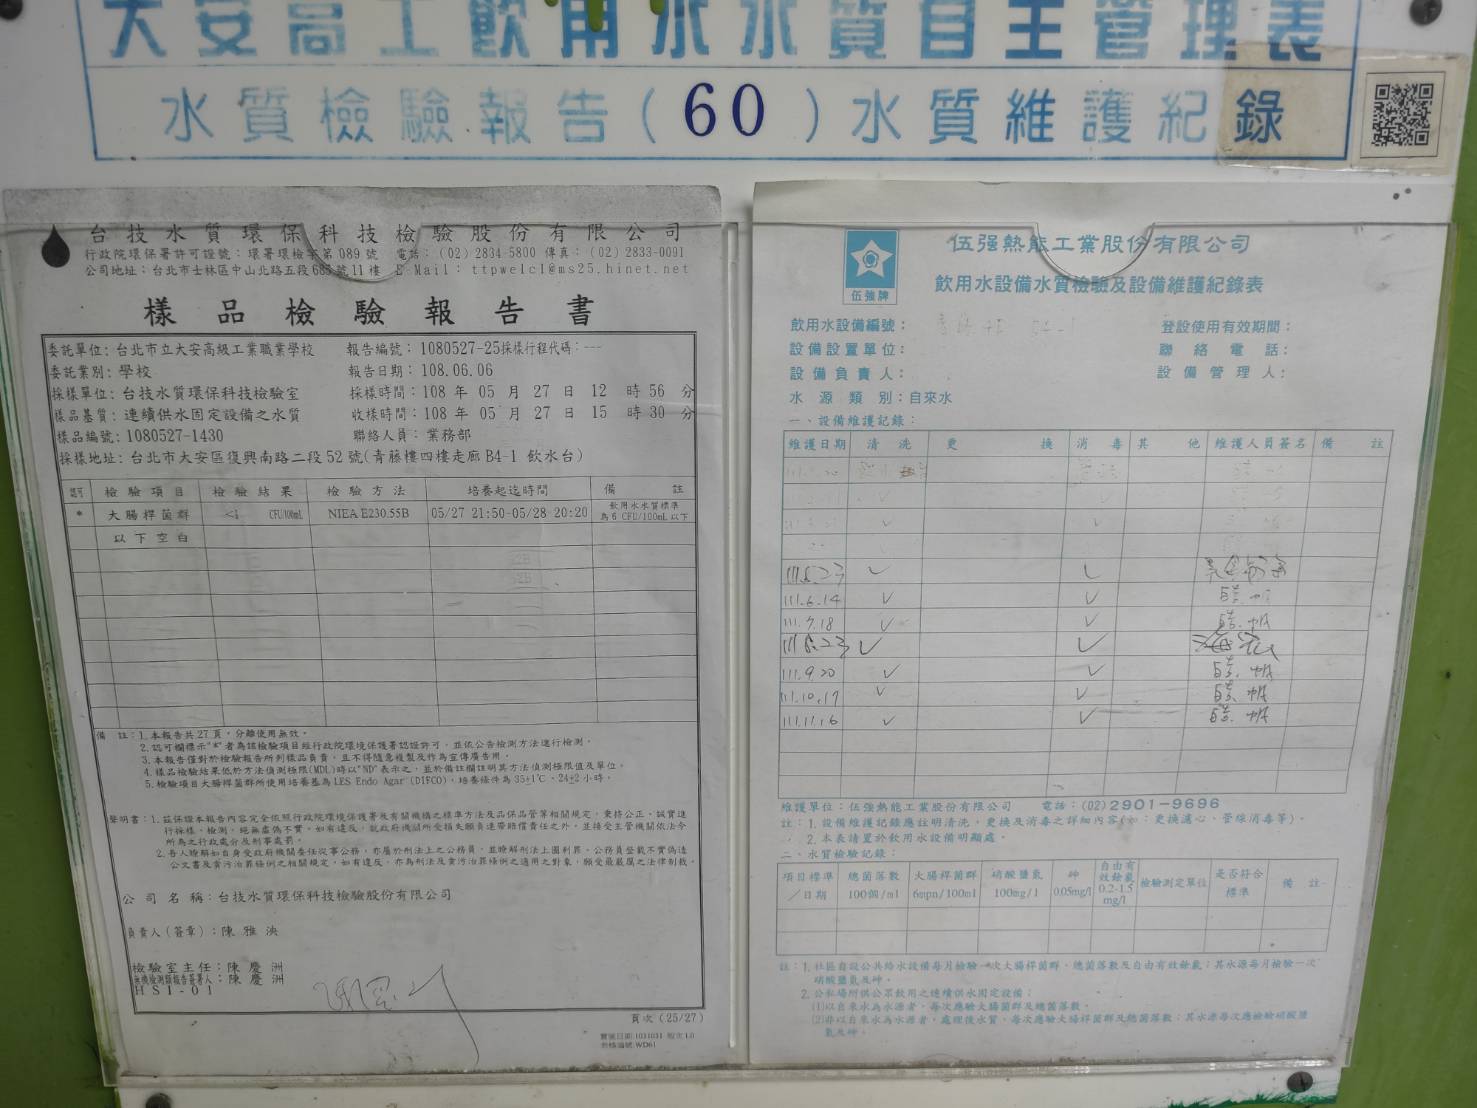 大安高工飲用水水質自主管理表
水質檢驗報告(60)水質維護紀錄
台技水質環保科技檢驗股份有限公司
行政院環保署許可證號：環署環檢字第 089 號 電話：(02) 2834-5800 傳真：(02) 2833-0091
公司地址：台北市士林區中山北路五段 號 11 樓 E-Mail： ttpwelcl@ms25.hinet.net
樣品檢驗報告書
委託單位：台北市立大安高級工業職業學校 報告編號：1080527-25採樣行程代碼：---
委託業別：學校 報告日期：108.06.06
採樣單位：台技水質環保科技檢驗室 採樣時間：108 年 05 月 27 日 12 時 56 分
樣品基質：連續供水固定設備之水質 收樣時間：108 年 05 月 27 日 15 時 30 分
樣品編號：1080527-1430 聯絡人員：業務部
採樣地址：台北市大安區復興南路二段 52 號(青藤樓四樓走廊 B4-1 飲水台)
認可 檢驗項目 檢驗結果 檢驗方法 培養起迄時間 備註
* 大腸桿菌群 <1 CFU/100mL NIEA E230.55B 05/27 21:50-05/28-20:20 飲用水水質標準
為 6 CFU/100mL 以下
以下空白
備 註：1.本報告共 27 頁，分離使用無效。
2.認可欄標示"*"者為該檢驗項目經行政院環境保護署認證許可，並依公告檢測方法進行檢測。
3.本報告僅對於檢驗報告所列樣品負責，且不得隨意複製及作為宣傳廣告用。
4.樣品檢驗結果低於方法偵測極限(MDL)時以"ND"表示之，並於備註欄註明其方法偵測極限值及單位。
5.檢驗項目大腸桿菌群所使用培養基為 LES Endo Agar (DIFCO)，培養條件為 35±1℃、24±2 小時。
聲明書：1.茲保證本報告內容完全依照行政院環境保護署及有關機構之標準方法及品保品管等相關規定，秉持公正、誠實進
行採樣、檢測，絕無虛偽不實，如有違反，就政府機關所受損失願負連帶賠償責任之外，並接受主管機關依法令
所為之行政處分及刑事處罰。
2.吾人瞭解如自身受政府機關委任從事公務，亦屬於刑法上之公務員，並瞭解刑法上圖利罪、公務員登載不實偽造
公文書及貪污治罪條例之相關規定，如有違反，亦為刑法及貪污治罪條例之適用之對象，願受最嚴厲之法律制裁。
公司名稱：台技水質環保科技檢驗股份有限公司
負責人(簽章)：陳雅泱
檢驗室主任：陳慶洲
無機檢測類報告簽署人：陳慶洲
HSI-01
頁次 (25/27)
實施日期:1031031 版次:1.0
表格編號:WD61
伍強牌
伍强熱能工業股份有限公司
飲用水設備水質檢驗及設備維護紀錄表
飲用水設備編號： 登設使用有效期間：
設備設置單位： 聯絡電話：
設備負責人： 設備管理人：
水源類別：自來水
一、設備維護記錄：
維護日期 清洗 更換 消毒 其他 維護人員簽名 備註
111.6.14 ✓ ✓
111.7.18 ✓ ✓
111.8.23 ✓ ✓
111.9.20 ✓ ✓
111.10.17 ✓ ✓
111.11.16 ✓ ✓
維護單位：伍强熱能工業股份有限公司 電話：(02)2901-9696
註：1.設備維護記錄應註明清洗、更換及消毒之詳細內容(如：更換濾心、管線消毒等)。
2.本表請置於飲用水設備明顯處。
二、水質檢驗記錄：
項目標準／日期 總菌落數 100個/ml 大腸桿菌群 6mpn/100ml 硝酸鹽氮 100mg/l 砷 0.05mg/l 自由有效餘氯 0.2-1.5 mg/l 檢驗測定單位 是否符合標準 備註
註：1.社區自設公共給水設備每月檢驗一次大腸桿菌群、總菌落數及自由有效餘氯；其水源每月檢驗一次
硝酸鹽氮及砷。
2.公私場所供公眾飲用之連續供水固定設備：
(1)以自來水為水源者，每次應驗大腸菌群及總菌落數。
(2)非以自來水為水源者，處理後水質，每次應驗大腸桿菌群及總菌落數；其水源每次應檢驗硝酸鹽
氮及砷。